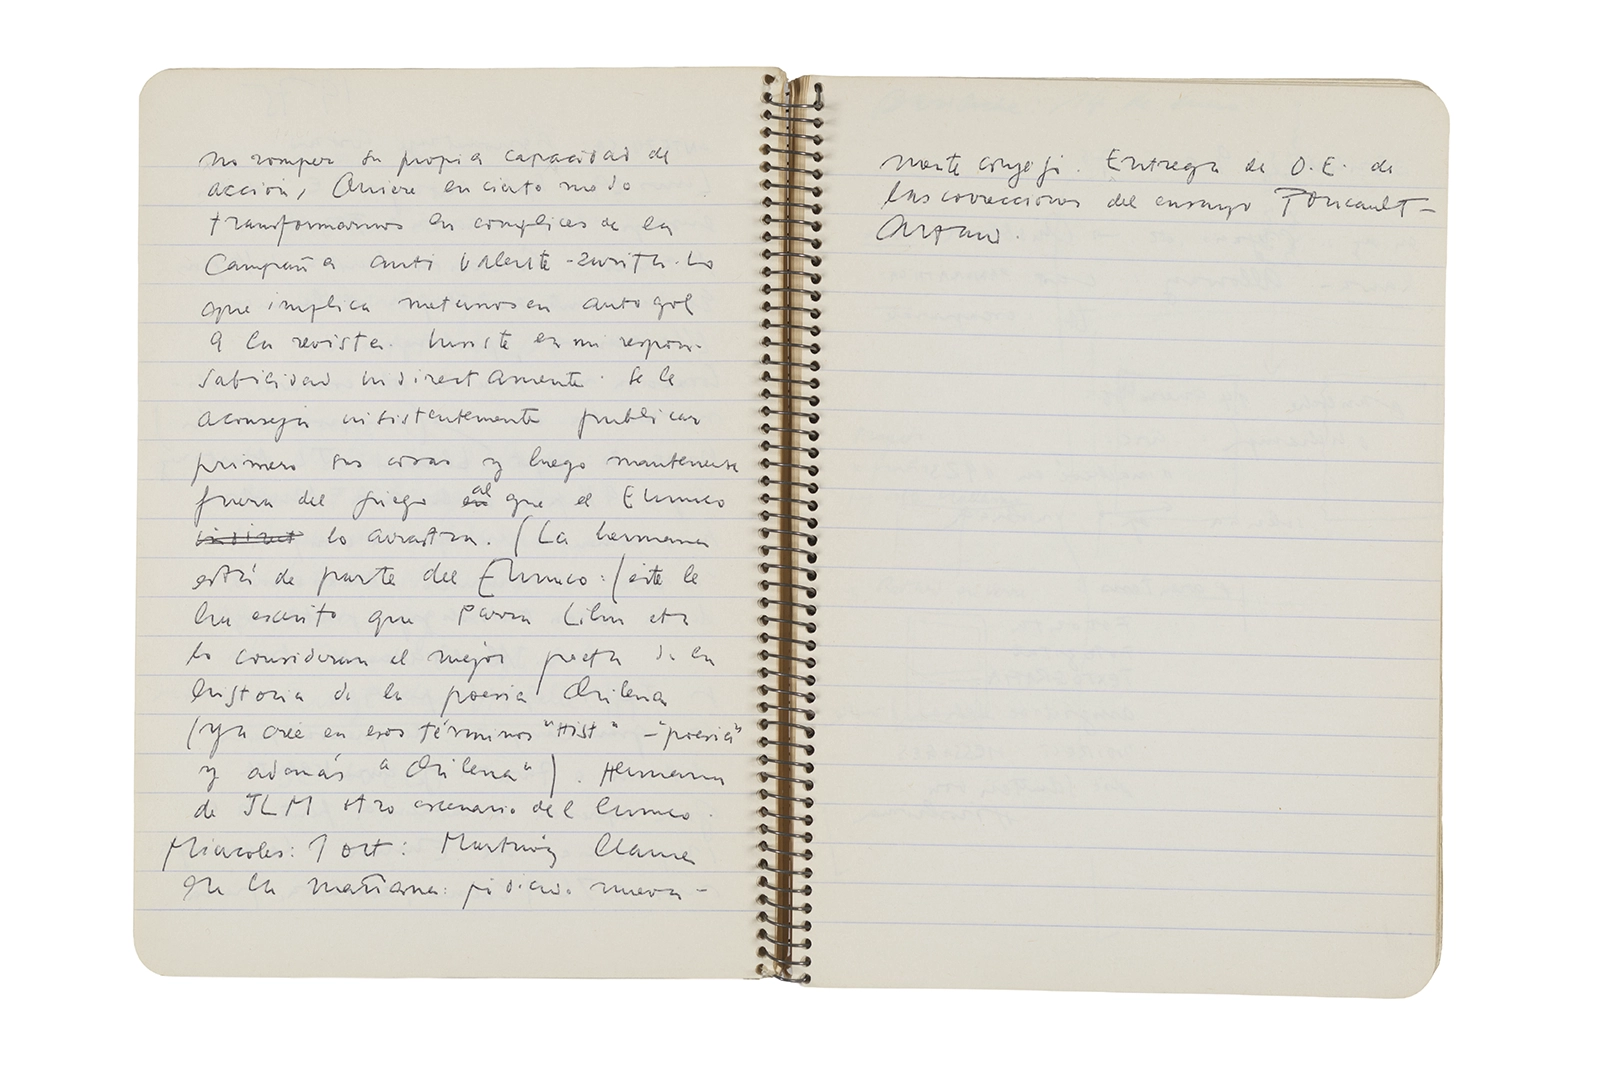 no romper su propia capacidad de
acción, Quiere en cierto modo
transformarnos en cómplices de la
Campaña anti Valente-Zurita. Lo
que implica meternos en autogol
a la revista. Insiste en mi respon-
sabilidad indirectamente. Se le
aconseja insistentemente publicar
primero sus cosas y luego mantenerse
fuera del juego al que el Eunuco
lo arrastra. (La hermana
está de parte del Eunuco: (éste le
ha escrito que Parra Lihn etc
lo consideran el mejor poeta de la
historia de la poesía chilena
(ya cree en esos términos "Hist" - "poesía"
y además "chilena"). Hermana
de JLM otro escenario del Eunuco.
Miércoles: 1 oct: Martínez llama
en la mañana: pidiendo nueva-
mente consejo. Entrega de O.E. de
las correcciones del ensayo Foucault-
Artaud.